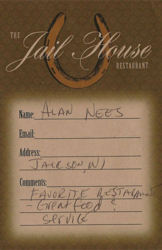 THE
Jail House
RESTAURANT
Name: ALAN NEES
Email:
Address:
JACKSON, WI
Comments:
FAVORITE RESTAURANT
- GREAT FOOD &
SERVICE